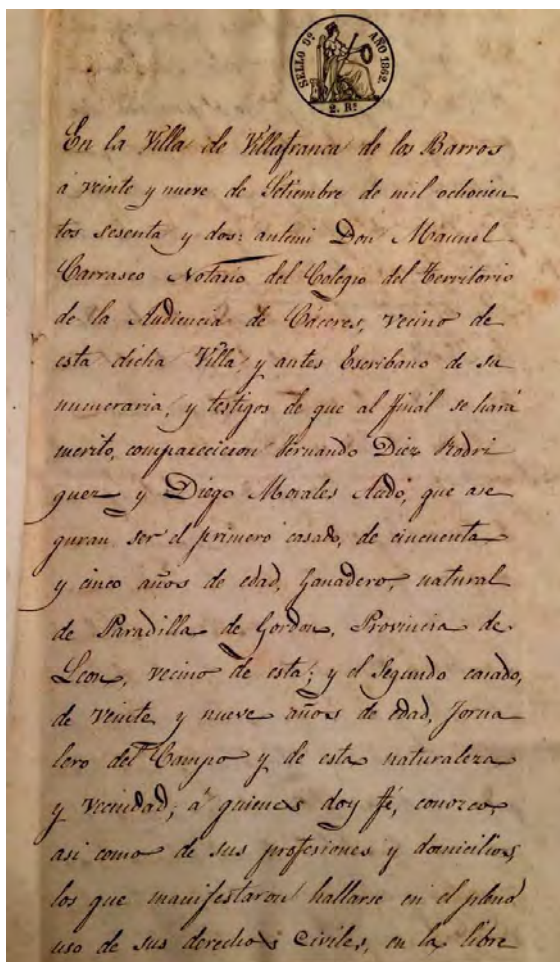 SELLO 9º AÑO 1862.
2. Rs
En la Villa de Villafranca de los Barros
á veinte y nueve de Setiembre de mil ochocien
tos sesenta y dos: antemi Don Manuel
Carrasco Notario del Colegio del Territorio
de la Audiencia de Cáceres, vecino de
esta dicha Villa, y antes Escribano de su
numeraria, y testigos de que al finál se hará
merito, comparecieron Fernando Diez Rodri
guez y Diego Morales, que ase
guran ser el primero casado, de cincuenta
y cinco años de edad, Ganadero, natural
de Paradilla de Gordon, Provincia de
Leon, vecino de esta; y el Segundo casado,
de veinte y nueve años de edad, Jorna
lero del Campo y de esta naturaleza
y vecindad; á quienes doy fé, conozco,
asi como de sus profesiones y domicilios,
los que manifestaron hallarse en el pleno
uso de sus derechos Civiles, en la libre